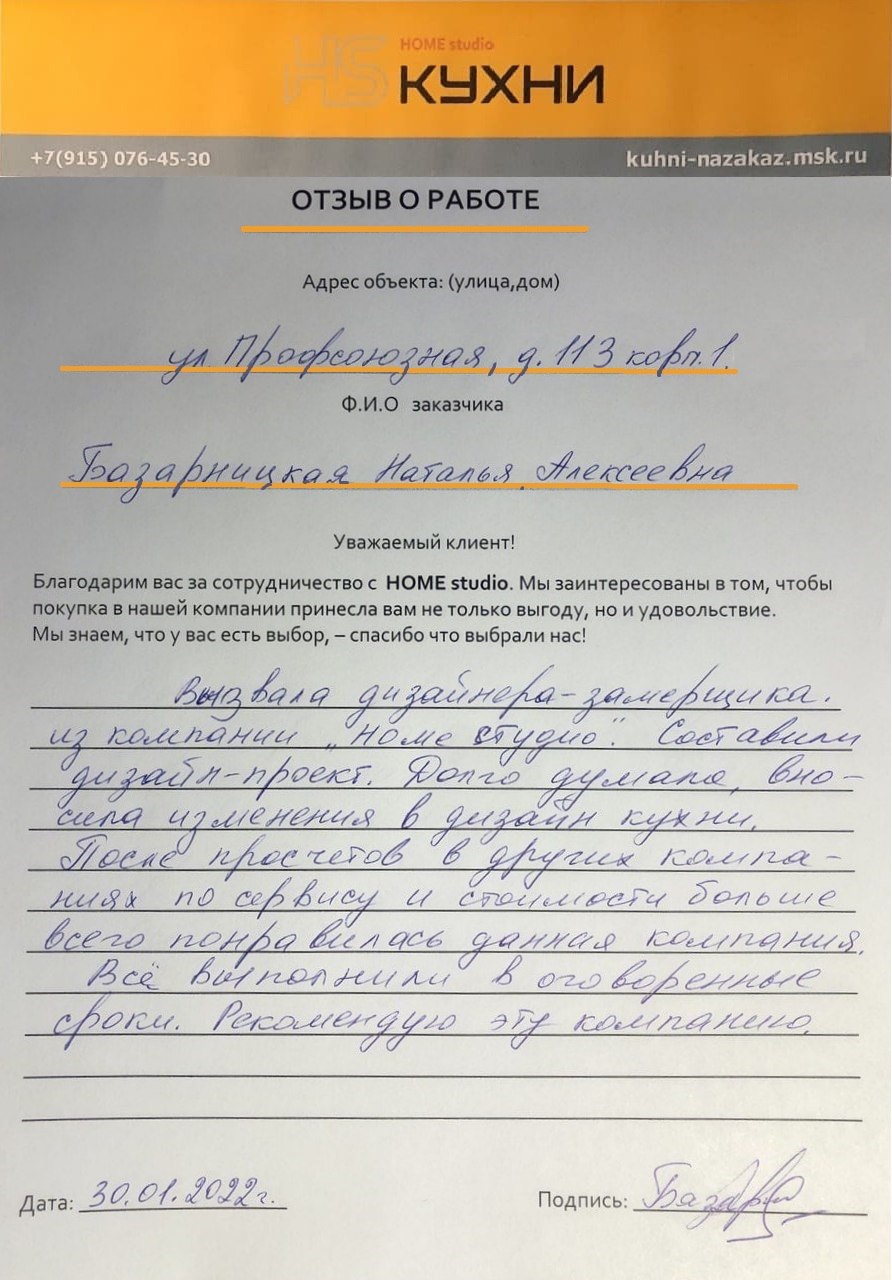 HS HOME studio
КУХНИ
+7(915) 076-45-30 kuhni-nazakaz.msk.ru
ОТЗЫВ О РАБОТЕ
Адрес объекта: (улица,дом)
ул Профсоюзная, д. 113 корп. 1.
Ф.И.О заказчика
Базарницкая Наталья Алексеевна
Уважаемый клиент!
Благодарим вас за сотрудничество с HOME studio. Мы заинтересованы в том, чтобы
покупка в нашей компании принесла вам не только выгоду, но и удовольствие.
Мы знаем, что у вас есть выбор, – спасибо что выбрали нас!
Вызвала дизайнера-замерщика.
из компании „Номе студио". Составили
дизайн-проект. Долго думала, вно-
сила изменения в дизайн кухни.
После просчетов в других компа-
ниях по сервису и стоимости больше
всего понравилась данная компания.
Всё выполнили в оговоренные
сроки. Рекомендую эту компанию.
Дата: 30.01.2022г. Подпись: Базар